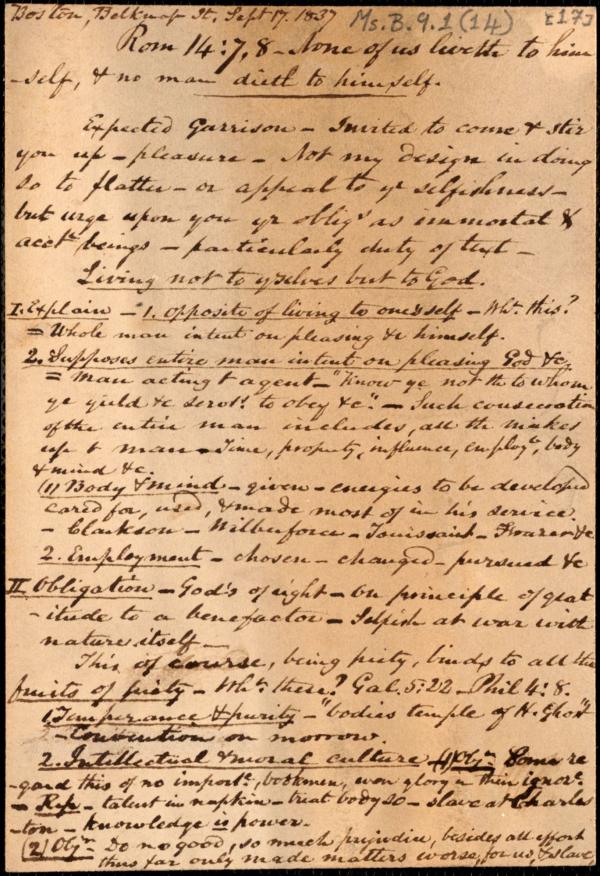 Boston, Belknap St. Sept 17. 1837 Ms. B. 9. 1 (14) [17]
Rom 14:7,8 - None of us liveth to him
-self, & no man dieth to himself.
Expected Garrison - Invited to come & stir
you up - pleasure - Not my design in doing
so to flatter - or appeal to yr selfishness -
but urge upon you yr obligs as immortal &
acct beings - particularly duty of text -
Living not to yrselves but to God.
I. Explain - 1. opposite of living to oneself - Wht. this?
= Whole man intent on pleasing &c himself.
2. Supposes entire man intent on pleasing God &c.
= man acting agent - "Know ye not tht to whom
ye yield &c servts. to obey &c". - Such consecration
of the entire man includes, all tht makes
up man - Time, property, influence, employt, body
& mind &c.
(1) Body & mind - given - energies to be developed
cared for, used, & made most of in his service.
- Clarkson - Wilberforce - Touissaint - &c
2. Employment - chosen - changed - pursued &c
II Obligation - God's of right - on principle of grat
-itude to a benefactor - Selfish at war with
nature itself -
This of course, being piety, binds to all the
fruits of piety - Wht. these? Gal. 5:22 - Phil 4:8.
1. Temperance & purity - "bodies temple of H. Ghost"
- Convention on morrow.
2. Intellectual & moral culture - (1) Objn. Some re
-gard this of no importe, bookmen, won glory in their ignore.
- Rep - talent in napkin - treat body so - slave at Charles
-ton - knowledge is power.
(2) Objn - Do no good, so much prejudice, besides all effort
thus far only made matters worse, for us, & slave,